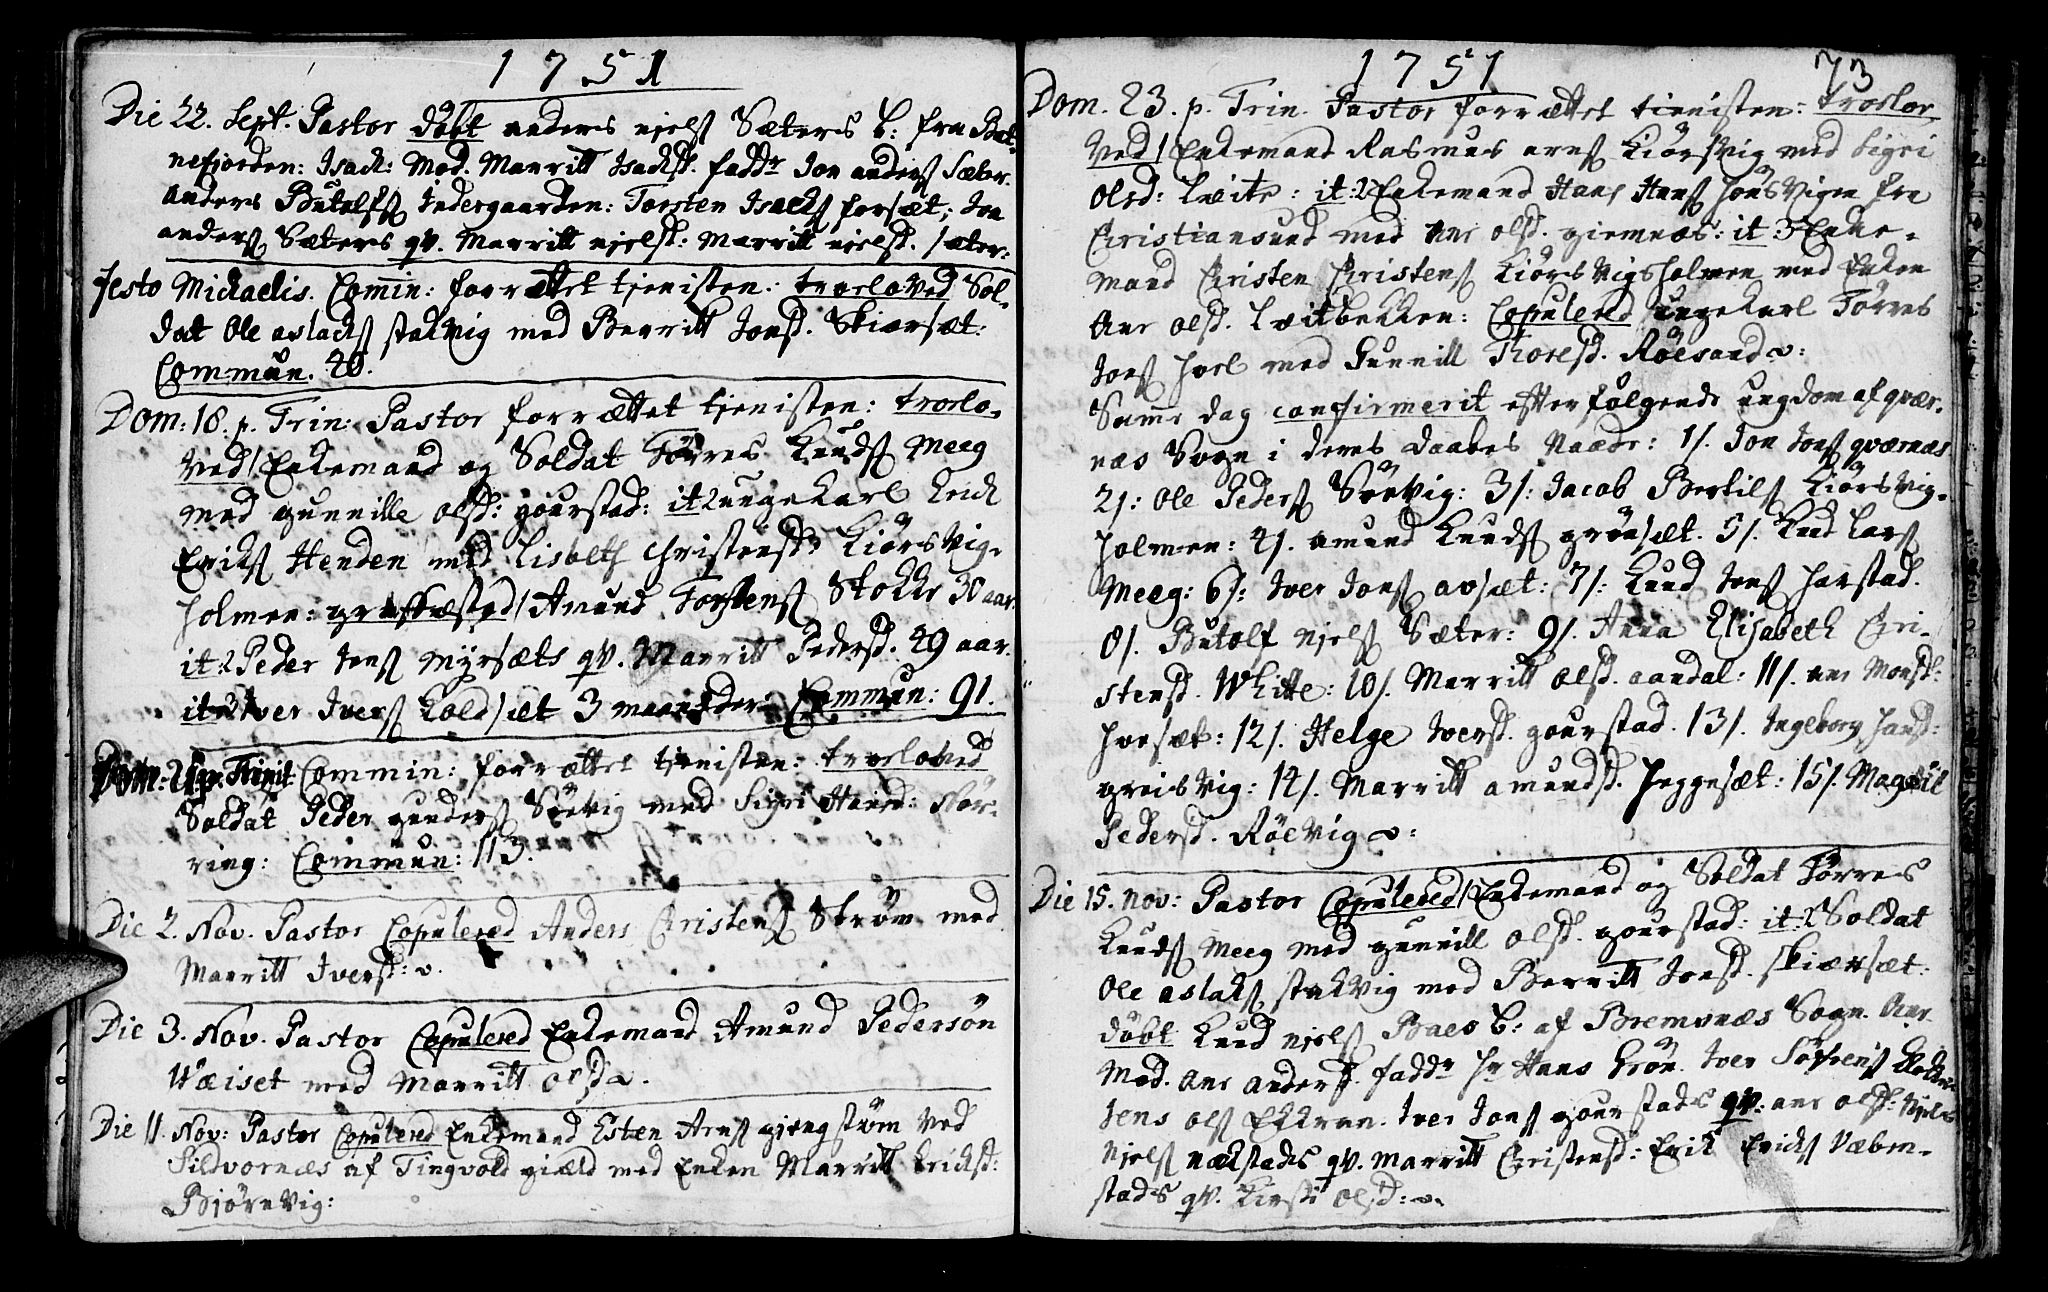 1751
Die 22. Sept. Pastor döbt anders njels Sæters b: fra Bat-
nefjorden: Isach: Mod. Marritt Isachsd. fadd:r Jon anders Sæter.
Anders Butolfs Indergaarden: Torsten Isachs forsæt; Jon
anders Sæters qv. Marritt njelsd: Marritt njelsd. sæter.
Festo Michaelis. Com̅in: forrættet tjenisten: troeloved Sol-
dat Ole aslachs stakvig med Berritt Jonsd. Skiørsæt:
Commun. 40.
Dom: 18. p. Trin: Pastor forrættet tjenisten: troelo-
ved / Enkemand og Soldat Törres Knuds Meeg
med gunnille olsd: gourstad: it: 2 ungekarl Erich
Erichs Henden med Lisbeth Christensd: Kiörsvig-
holmen: grafkæsted / Amund Torstens Stokke 30 aar.
it: 2 Peder Jens Myrsæts qv. Marritt Pedersd. 49 aar.
it: 3 Iver Ivers Koldsæt 3 maaneder: Commun: 91.
Dom: 21. p. Trinit Commin: forrættet tjenisten: troeloved
Soldat Peder gunders Sövig med Sigri Hansd: Nör-
ring: Commun: 113.
Die 2. Nov. Pastor Copulered Anders Christens Ström med
Marritt Iversd:
Die 3. Nov. Pastor Copulered Enkemand Amund Pedersön
Wæiset med Marritt olsd.
Die 11. Nov: Pastor Copulered Enkemand Esten Arns gjengstøm ved
Sildvornæs af Tingvold gield med Enken Marritt Erichsd:
Bjørnvig:
1751 73
Dom. 23. p. Trin. Pastor forrættet tienisten: troelov-
ved / Enkemand Rasmus arns Kiörsvig med Sigri
Olsd: Lvite: it: 2 Enkemand Hans Hans Hönsvigen fra
Christiansund med Ane olsd. giemnæs: it: 3 Enke-
mand Christen Christens Kiörsvigsholmen med Enken
Ane olsd. Lvitbekken: Copulered ungekarl Törres
Jons hoel med Gunnill Thoresd. Röesand:
Sam̅e dag confirmerit effterfølgende ungdom af qvær-
næs Sogn i deres daabes Naade: 1/. Jon Jons qværnæs
2/: Ole Peders Sövig: 3/: Jacob Bertils Kiörsvig-
holmen: 4/. Amund Knuds grönsæt. 5/. Knud Lars
Meeg: 6/: Iver Jons avsæt: 7/: Knud Jens harstad.
8/. Butolf njels Sæter: 9/. Anna Elisabeth Chri-
stensd. Whitte: 10/. Marritt olsd. aandal: 11/. ane Monsd:
hoesæt: 12/. Helge Iversd. gourstad. 13/. Ingeborg hansd:
greisvig: 14/. Marritt amundsd. Heggesæt: 15/. Magnil
Pedersd. Röevig:
Die 15. Nov: Pastor Copulered / Enkemand og Soldat Törres
Knuds Meeg med gunnill olsd. gourstad: it: 2 Soldat
Ole aslaks stakvig med Berritt Jonsd. Skiærsæt:
döbt Knud njels Baes b: af Bremsnæs Sogn. Ane
Mod. ane andersd. fadd:r Hr Hans Grön. Iver Söfrens
Jens ols Ekkran. Iver Jons gourstads qv: ane olsd: Njels
Njels nækstads qv. Marritt Christensd: Erik Ericks Væben-
stads qv. Kirsti olsd: